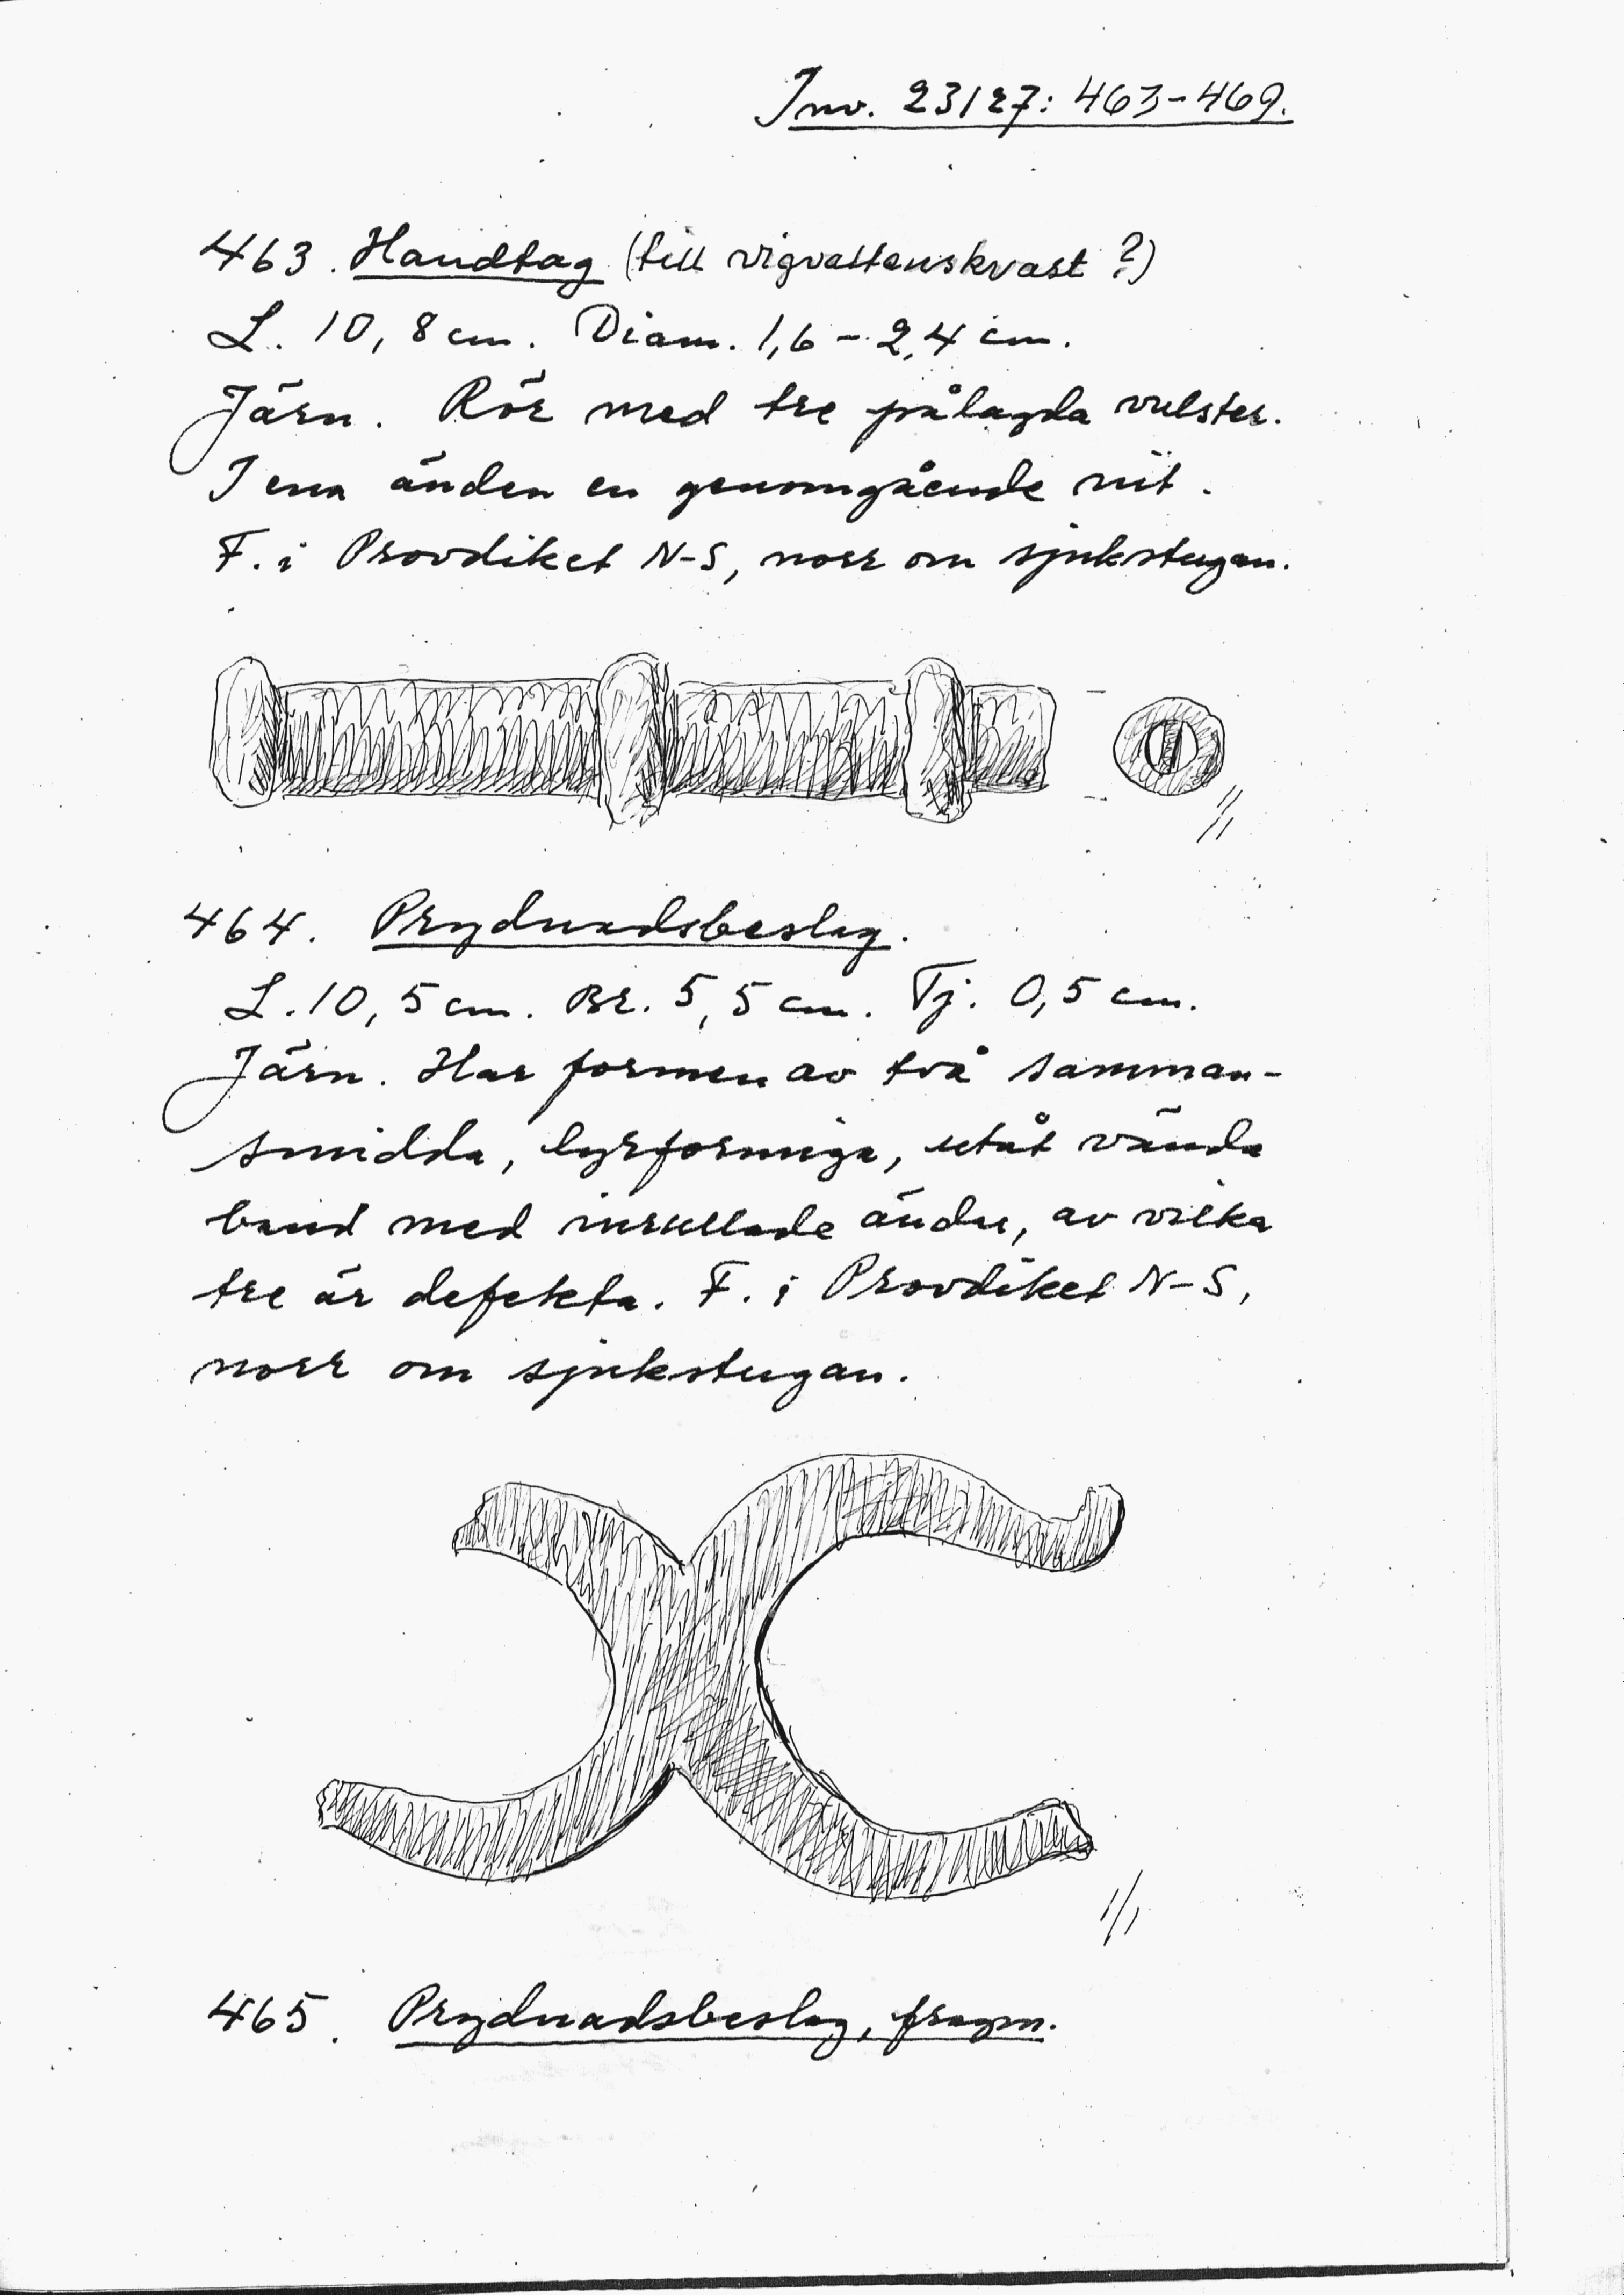 Inv. 23127: 463-469.
463. Handtag (till vigvattenskvast?)
L. 10,8 cm. Diam. 1,6-2,4 cm.
Järn. Rör med tre pålagda vulster.
I ena änden en genomgående nit.
F. i Provdiket N-S, norr om sjukstugan.
1/1
464. Prydnadsbeslag.
L. 10,5 cm. Br. 5,5 cm. Tj. 0,5 cm.
Järn. Har formen av två samman-
smidda, lyrformiga, utåt vända
band med inrullade ändar, av vilka
tre är defekta. F. i Provdiket N-S,
norr om sjukstugan.
1/1
465. Prydnadsbeslag, fragm.